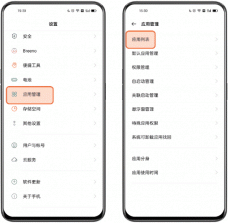 设置
安全
Breeno
便捷工具
电池
应用管理
存储空间
其他设置
用户与帐号
云服务
软件更新
关于手机
应用管理
应用列表
默认应用管理
权限管理
自启动管理
关联启动管理
悬浮窗管理
特殊应用权限
系统可卸载应用找回
应用分身
应用使用时间